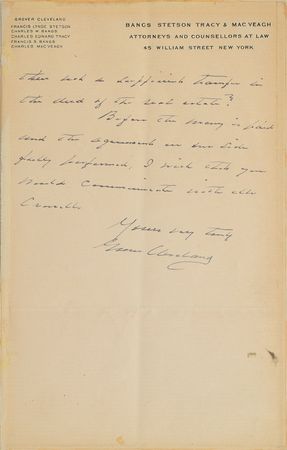 GROVER CLEVELAND
FRANCIS LYNDE STETSON
CHARLES W. BANGS
CHARLES EDWARD TRACY
FRANCIS S. BANGS
CHARLES MACVEAGH
BANGS STETSON TRACY & MACVEAGH
ATTORNEYS AND COUNSELLORS AT LAW
45 WILLIAM STREET NEW YORK
then such a sufficient transfer in
the deed of the real estate?
Before the money is paid
and the agreement on our side
fully performed, I wish that you
would communicate with
Yours very truly
Grover Cleveland